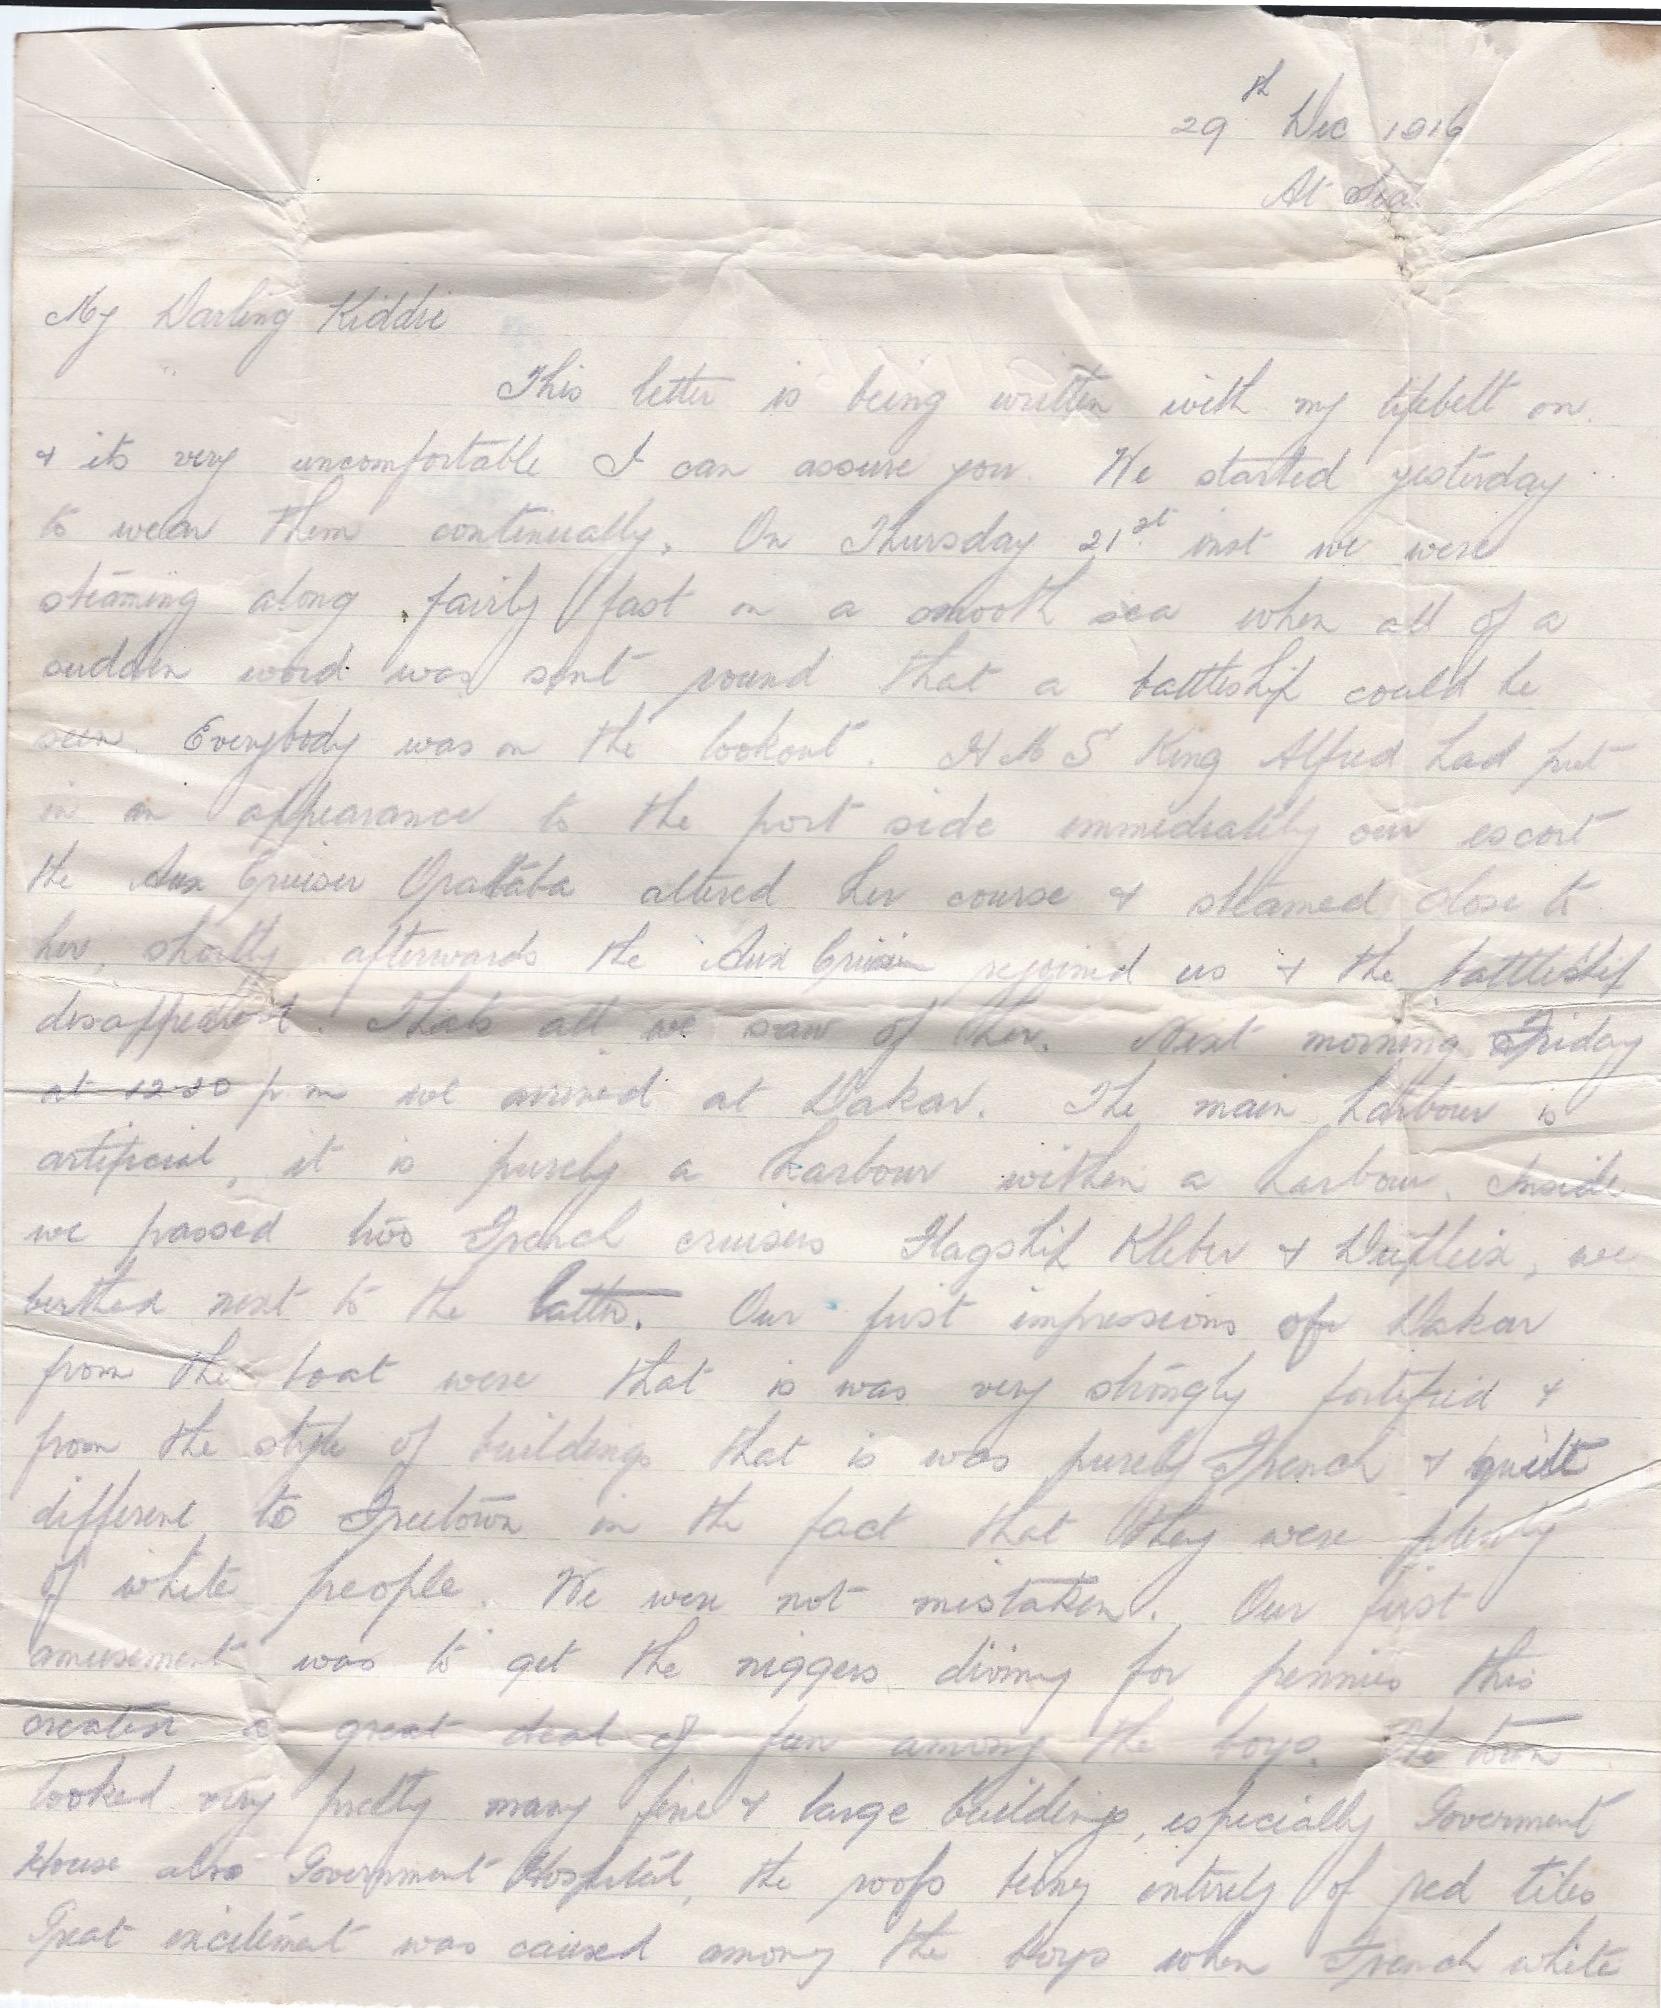 29th Dec 1916
At Sea
My Darling Kiddie
This letter is being written with my lifebelt on
& its very uncomfortable I can assure you. We started yesterday
to wear them continually. On Thursday 21st inst we were
steaming along fairly fast on a smooth sea when all of a
sudden word was sent round that a battleship could be
seen. Everybody was on the lookout. H M S King Alfred had put
in an appearance to the port side immediately our escort
the Aux Cruiser altered her course & steamed close to
her, shortly afterwards the Aux Cruiser rejoined us & the battleship
disappeared. Thats all we saw of her. Next morning Friday
at 12-30 p m we arrived at Dakar. The main harbour is
artificial, it is purely a harbour within a harbour. Inside
we passed two French cruisers Flagship Kleber & Dupleix, we
berthed next to the latter. Our first impressions of Dakar
from the boat were that is was very strongly fortified &
from the style of buildings that is was purely French & quite
different to Freetown in the fact that they were plenty
of white people. We were not mistaken. Our first
amusement was to get the niggers diving for pennies this
created a great deal of fun among the boys. The town
looked very pretty many fine & large buildings, especially Goverment
House also Government Hospital, the roofs being entirely of red tiles
Great excitement was caused among the boys when French white